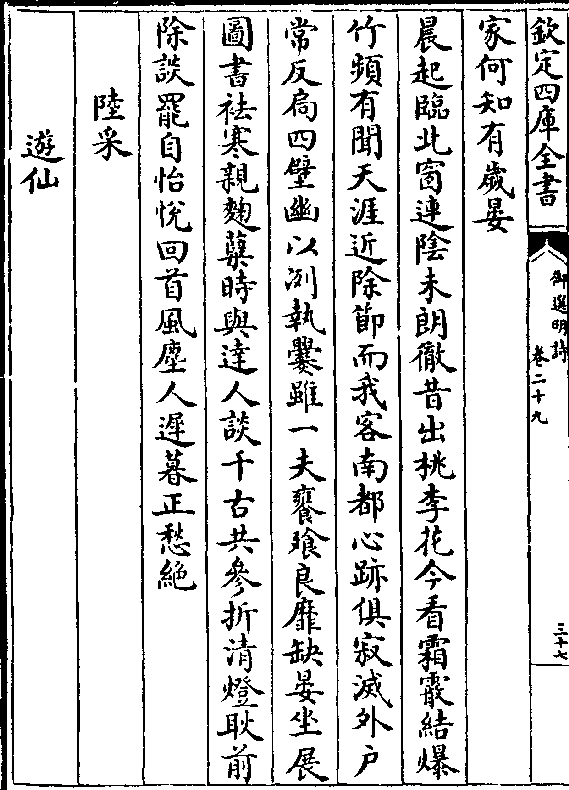 欽定四庫全書
御選明詩
卷二十九
三十七
家何知有歲晏
晨起臨北窗連陰未朗徹昔出桃李花今看霜霰結爆
竹頻有聞天涯近除節而我客南都心跡俱寂滅外户
常反扃四壁幽以冽執爨雖一夫饔飱良靡缺晏坐展
圖書袪寒親麴蘖時與達人談千古共參折清燈耿前
除談罷自怡悅回首風塵人遲暮正愁絶
陸采
遊仙